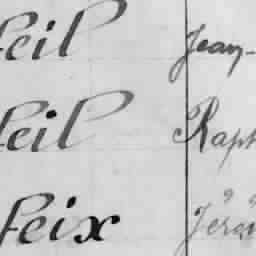 feil Jean-
feil Raph
feix Jérôm